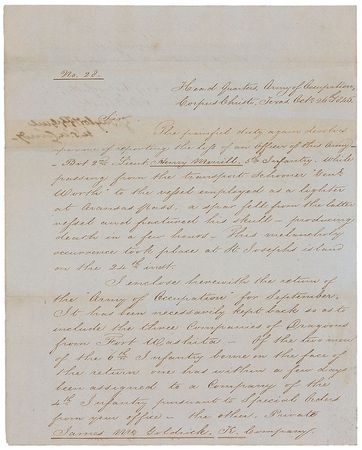 No. 28.
Head Quarters, Army of Occupation,
Corpus Christi, Texas, Oct. 26th 1845.
Sir,
The painful duty again devolves
upon me of reporting the loss of an officer of this Army
- Bvt 2nd Lieut. Henry Merrill, 5th Infantry. While
passing from the transport schooner "Genl.
Worth" to the vessel employed as a lighter
at Aransas Pass, a spar fell from the latter
vessel and fractured his skull - producing
death in a few hours. This melancholy
occurrence took place at St Josephs island
on the 24th inst.
I enclose herewith the return of
the "Army of Occupation" for September.
It has been necessarily kept back so as to
include the three Companies of Dragoons
from Fort Washita - Of the two men
of the 6th Infantry borne on the face of
the return one has within a few days
been assigned to a Company of the
4th Infantry pursuant to Special Orders
from your office - the other, Private
James Mc Goldrick, K. Company,